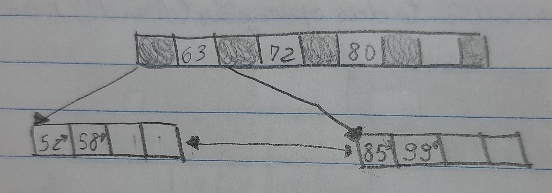 63 72 80
52* 58*
85* 99*